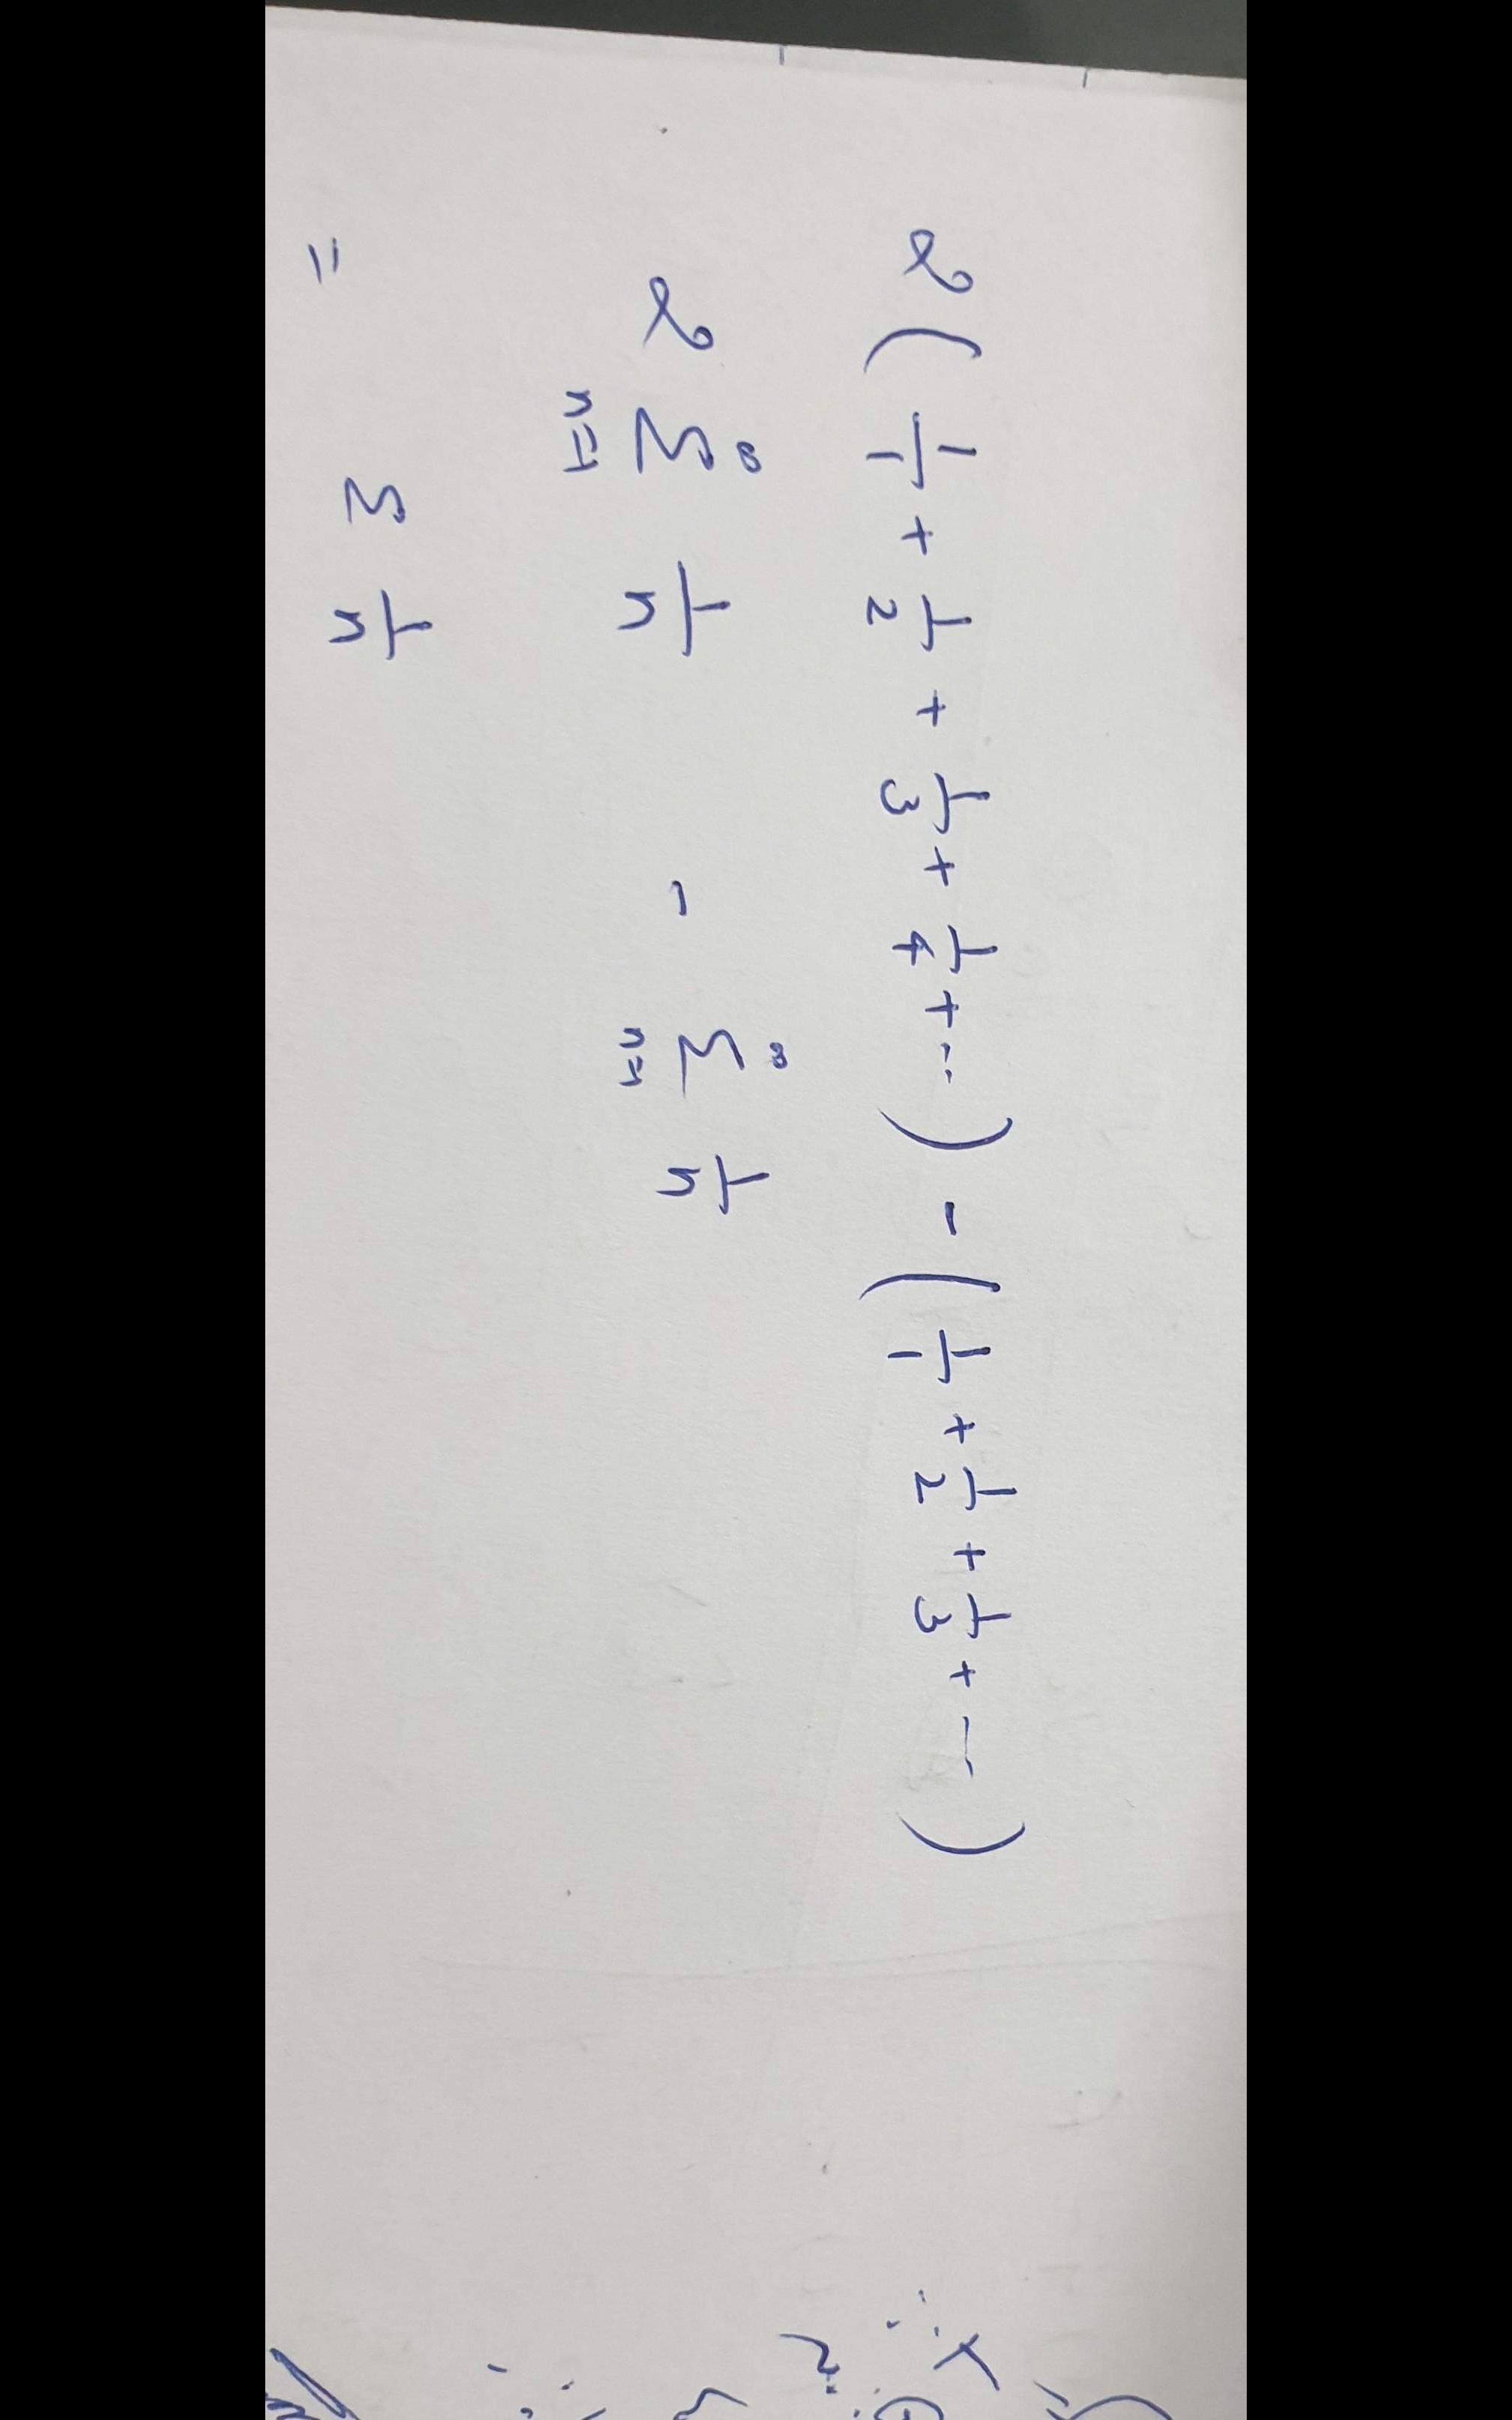 2 ( 1/1 + 1/2 + 1/3 + 1/4 + ... ) - ( 1/1 + 1/2 + 1/3 + --- )
2 ∞ Σ n=1 1/n - ∞ Σ n=1 1/n
= Σ 1/n